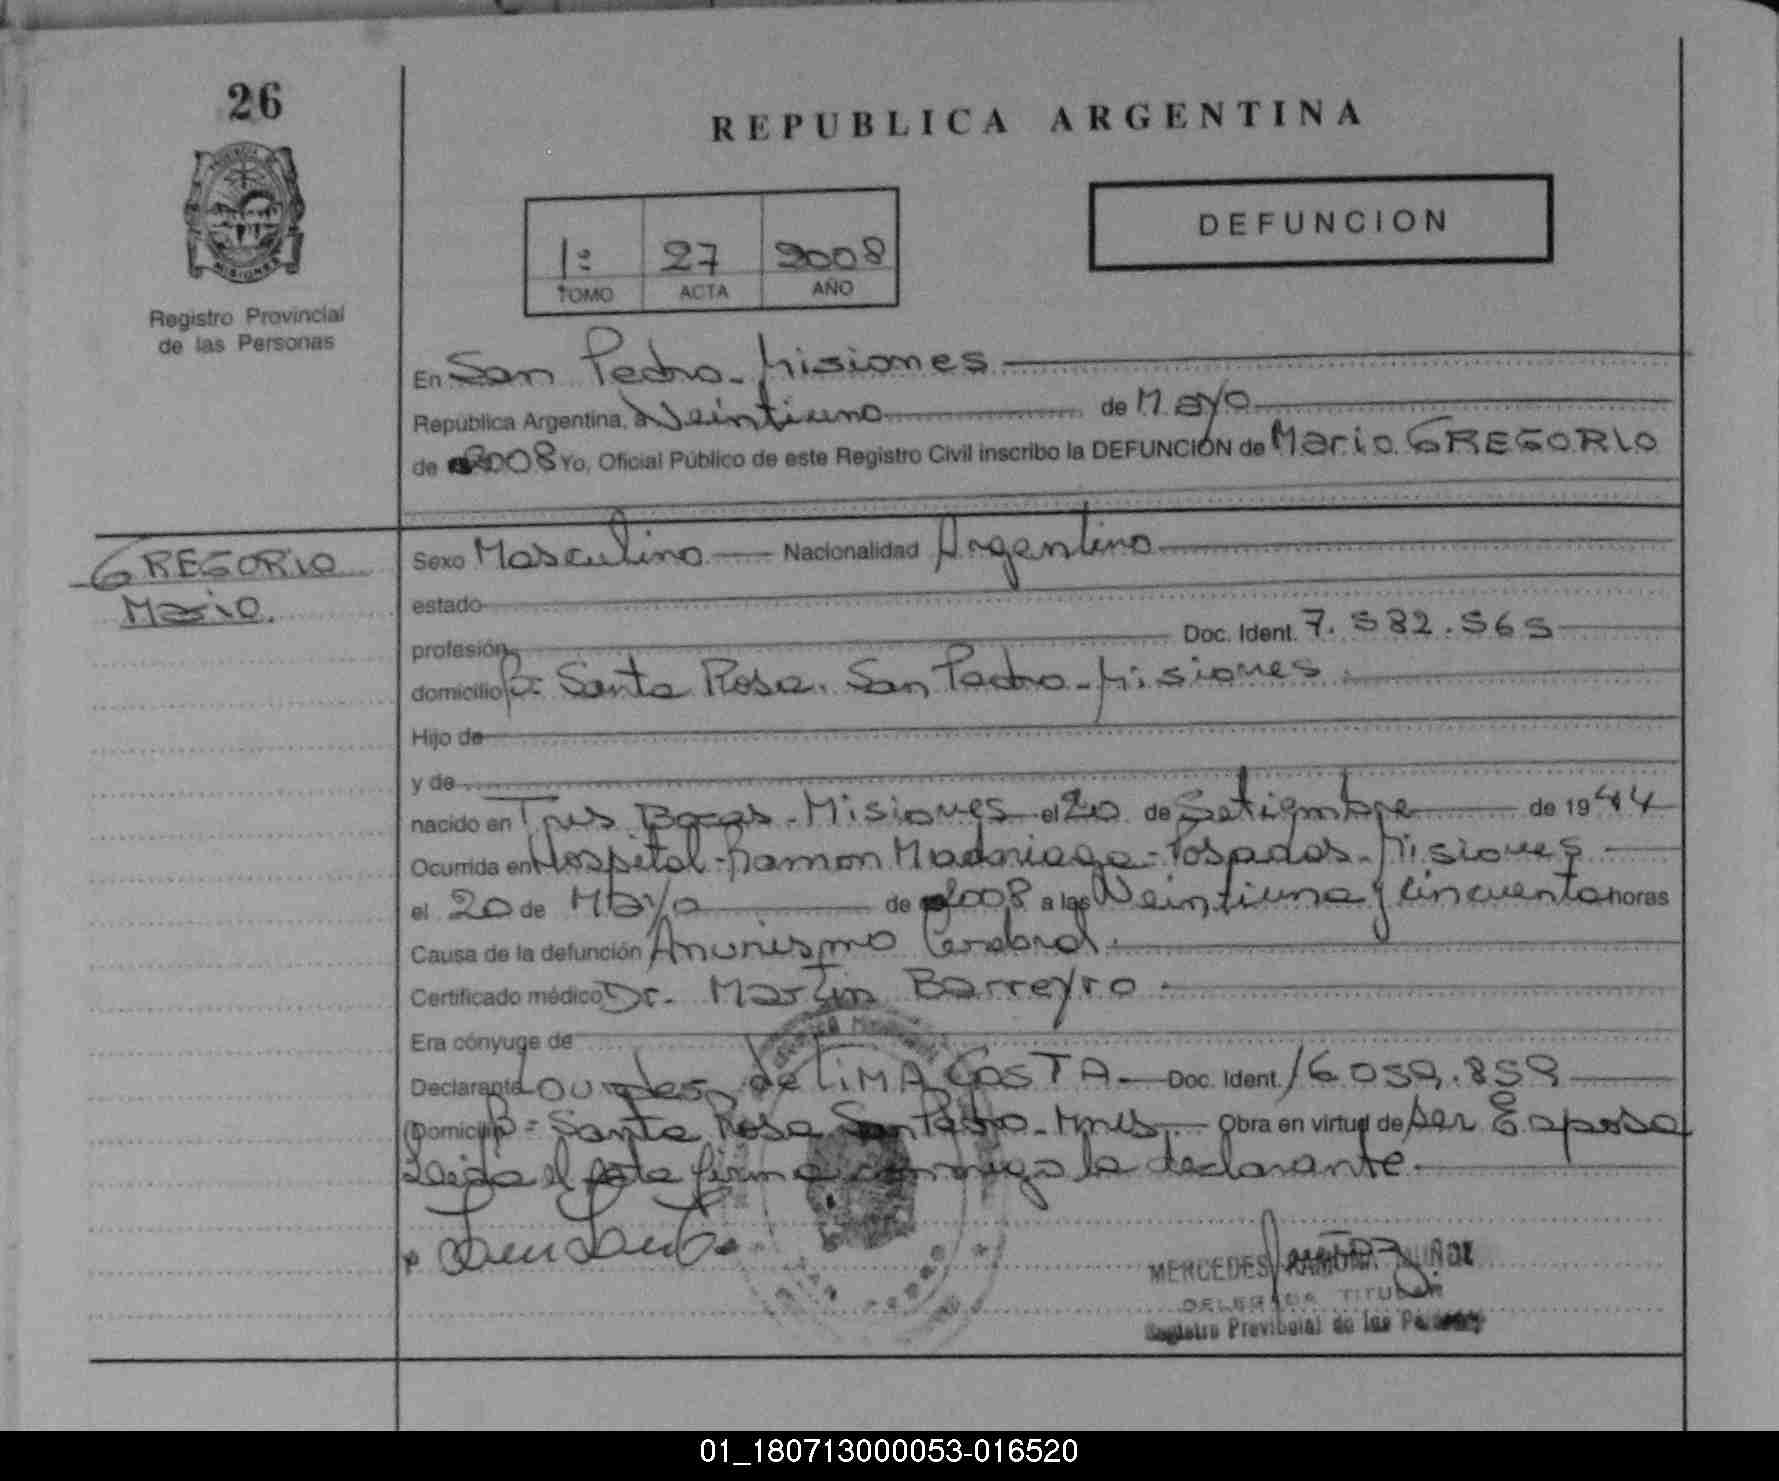 26
REPUBLICA ARGENTINA
PROVINCIA DE
MISIONES
Registro Provincial
de las Personas
1º 27 2008
TOMO ACTA AÑO
DEFUNCION
En San Pedro - Misiones
República Argentina, a Veintiuno de Mayo
de 2008 Yo, Oficial Público de este Registro Civil inscribo la DEFUNCIÓN de Mario GREGORIO
GREGORIO
Mario.
Sexo Masculino Nacionalidad Argentino
estado
profesión Doc. Ident. 7.582.565
domicilio Bº Santa Rosa. San Pedro - Misiones.
Hijo de
y de
nacido en Tres Bocas - Misiones el 20 de Setiembre de 1944
Ocurrida en Hospital - Ramon Madariaga - Posadas - Misiones
el 20 de Mayo de 2008 a las Veintiuna y cincuenta horas
Causa de la defunción Anurismo Cerebral.
Certificado médico Dr. Martin Barreyro
Era cónyuge de
Declarante Lourdes de LIMA COSTA Doc. Ident. 16059.859
Domicilio Bº Santa Rosa San Pedro - Mnes. Obra en virtud de ser Esposa
Leida el acta firma conmigo la declarante.
MERCEDES RAMONA MUÑOZ
DELEGADA TITULAR
Registro Provincial de las Personas
01_180713000053-016520